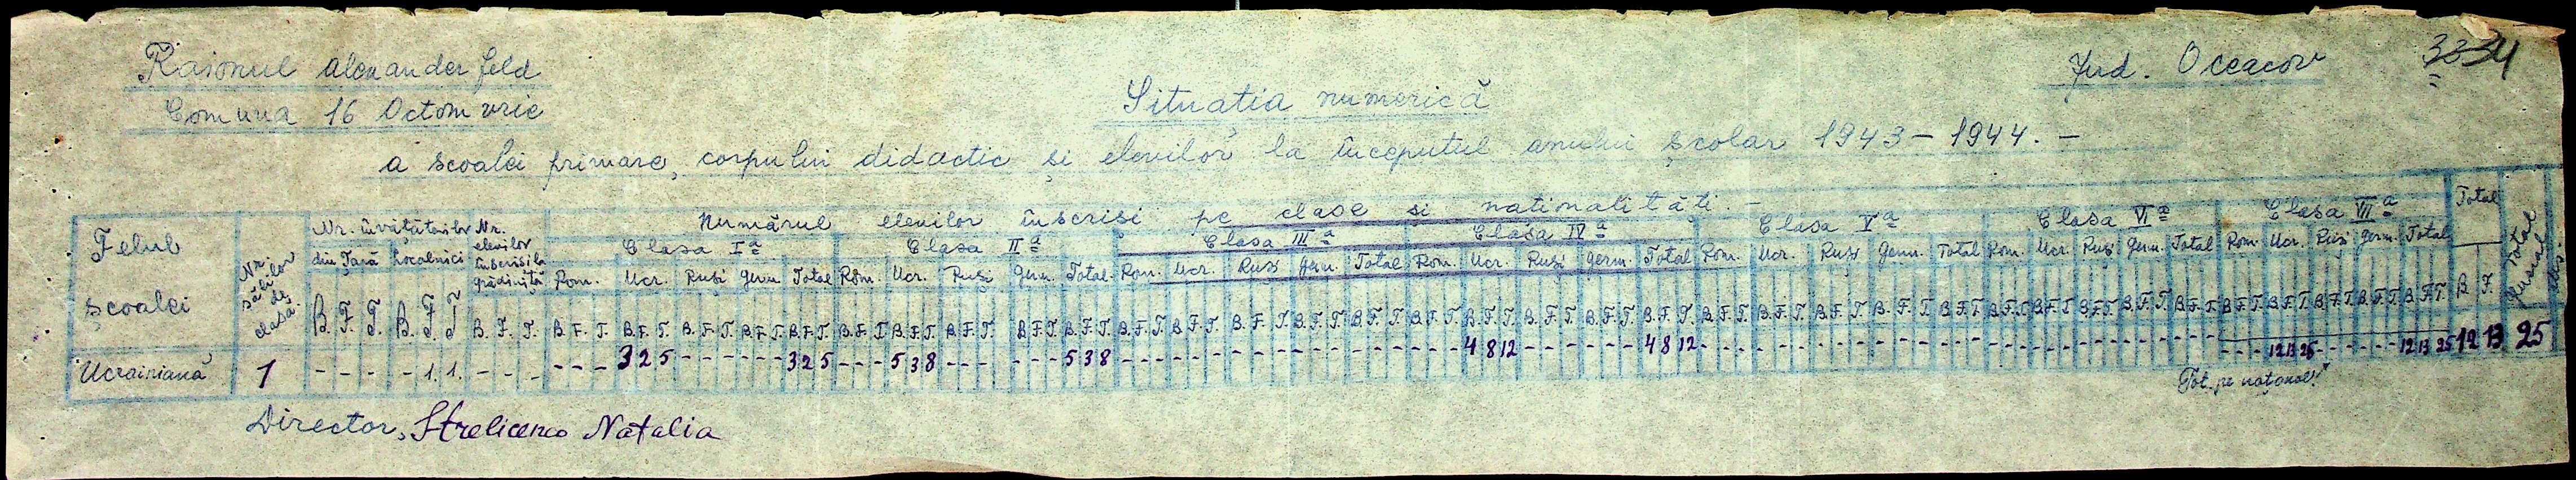 Raionul Alexanderfeld
Jud. Oceacov
3334
Comuna 16 Octomvrie
Situatia numerică
a scoalei primare, corpului didactic și elevilor la începutul anului școlar 1943 - 1944. -
Felul școalei
Nr. sălilor de clasă.
Nr. învățătorilor
din Țară Localnici
B. F. T. B. F. T
Nr. elevilor înscrisi la grădiniță
B. F. T.
Numărul elevilor înscriși pe clase și nationalități. -
Clasa I a Clasa II a Clasa III a Clasa IV a Clasa V a Clasa VI a Clasa VII a Total
Rom. Ucr. Ruși Germ Total Rom. Ucr. Ruși Germ. Total. Rom. Ucr. Ruși Germ. Total Rom. Ucr. Ruși Germ. Total Rom. Ucr. Ruși Germ. Total Rom. Ucr. Ruși Germ. Total Rom. Ucr. Ruși Germ. Total
B. F. T. B. F. T. B. F. T. B. F. T. B. F. T. B. F. T. B. F. T. B. F. T. B. F. T. B. F. T. B. F. T. B. F. T. B. F. T. B. F. T. B. F. T. B. F. T. B. F. T. B. F. T. B. F. T. B. F. T. B. F. T. B. F. T. B. F. T. B. F. T. B. F. T. B. F. T. B. F. T. B. F. T. B. F. T. B. F. T. B. F. T. B. F. T. B. F. T. B. F. T. B. F. T. B F.
Total general
Ucrainiană 1 - - - - 1. 1. - - - - - - 3 2 5 - - - - - - 3 2 5 - - - 5 3 8 - - - - - - 5 3 8 - - - - - - - - - - - - - - - - - - 4 8 12 - - - - - - 4 8 12 - - - - - - - - - - - - - - - - - - - - - - - - - - - - - - - - - 12 13 25 - - - - - - 12 13 25 12 13 25
Tot. pe naționali.
Director, Strelicenco Natalia